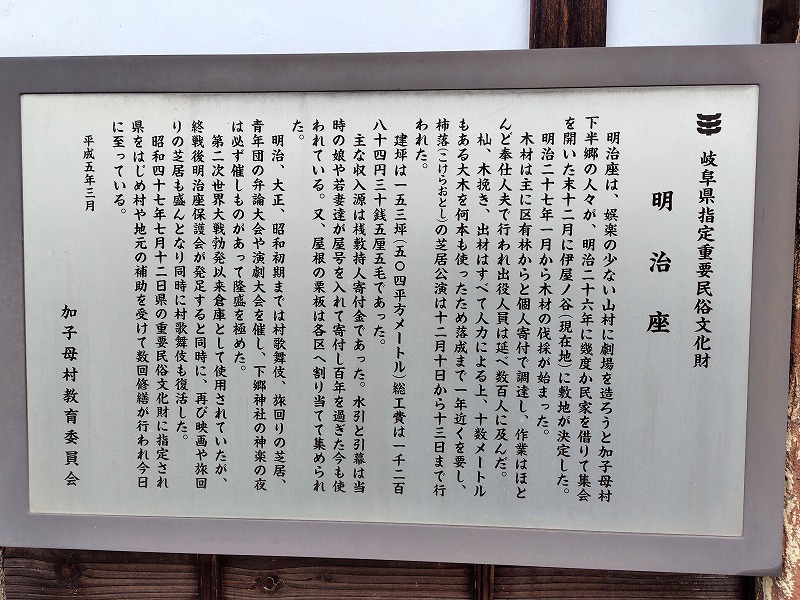 岐阜県指定重要民俗文化財
明治座
明治座は、娯楽の少ない山村に劇場を造ろうと加子母村
下半郷の人々が、明治二十六年に幾度か民家を借りて集会
を開いた末十二月に伊屋ノ谷(現在地)に敷地が決定した。
明治二十七年一月から木材の伐採が始まった。
木材は主に区有林からと個人寄付で調達し、作業はほと
んど奉仕人夫で行われ出役人員は延べ数百人に及んだ。
杣、木挽き、出材はすべて人力による上、十数メートル
もある大木を何本も使ったため落成まで一年近くを要し、
杮落(こけらおとし)の芝居公演は十二月十日から十三日まで行
われた。
建坪は一五三坪(五〇四平方メートル)総工費は一千二百
八十四円三十銭五厘五毛であった。
主な収入源は桟敷持人寄付金であった。水引と引幕は当
時の娘や若妻達が屋号を入れて寄付し百年を過ぎた今も使
われている。又、屋根の栗板は各区へ割り当てて集められ
た。
明治、大正、昭和初期までは村歌舞伎、旅回りの芝居、
青年団の弁論大会や演劇大会を催し、下郷神社の神楽の夜
は必ず催しものがあって隆盛を極めた。
第二次世界大戦勃発以来倉庫として使用されていたが、
終戦後明治座保護会が発足すると同時に、再び映画や旅回
りの芝居も盛んとなり同時に村歌舞伎も復活した。
昭和四十七年七月十二日県の重要民俗文化財に指定され
県をはじめ村や地元の補助を受けて数回修繕が行われ今日
に至っている。
平成五年三月
加子母村教育委員会